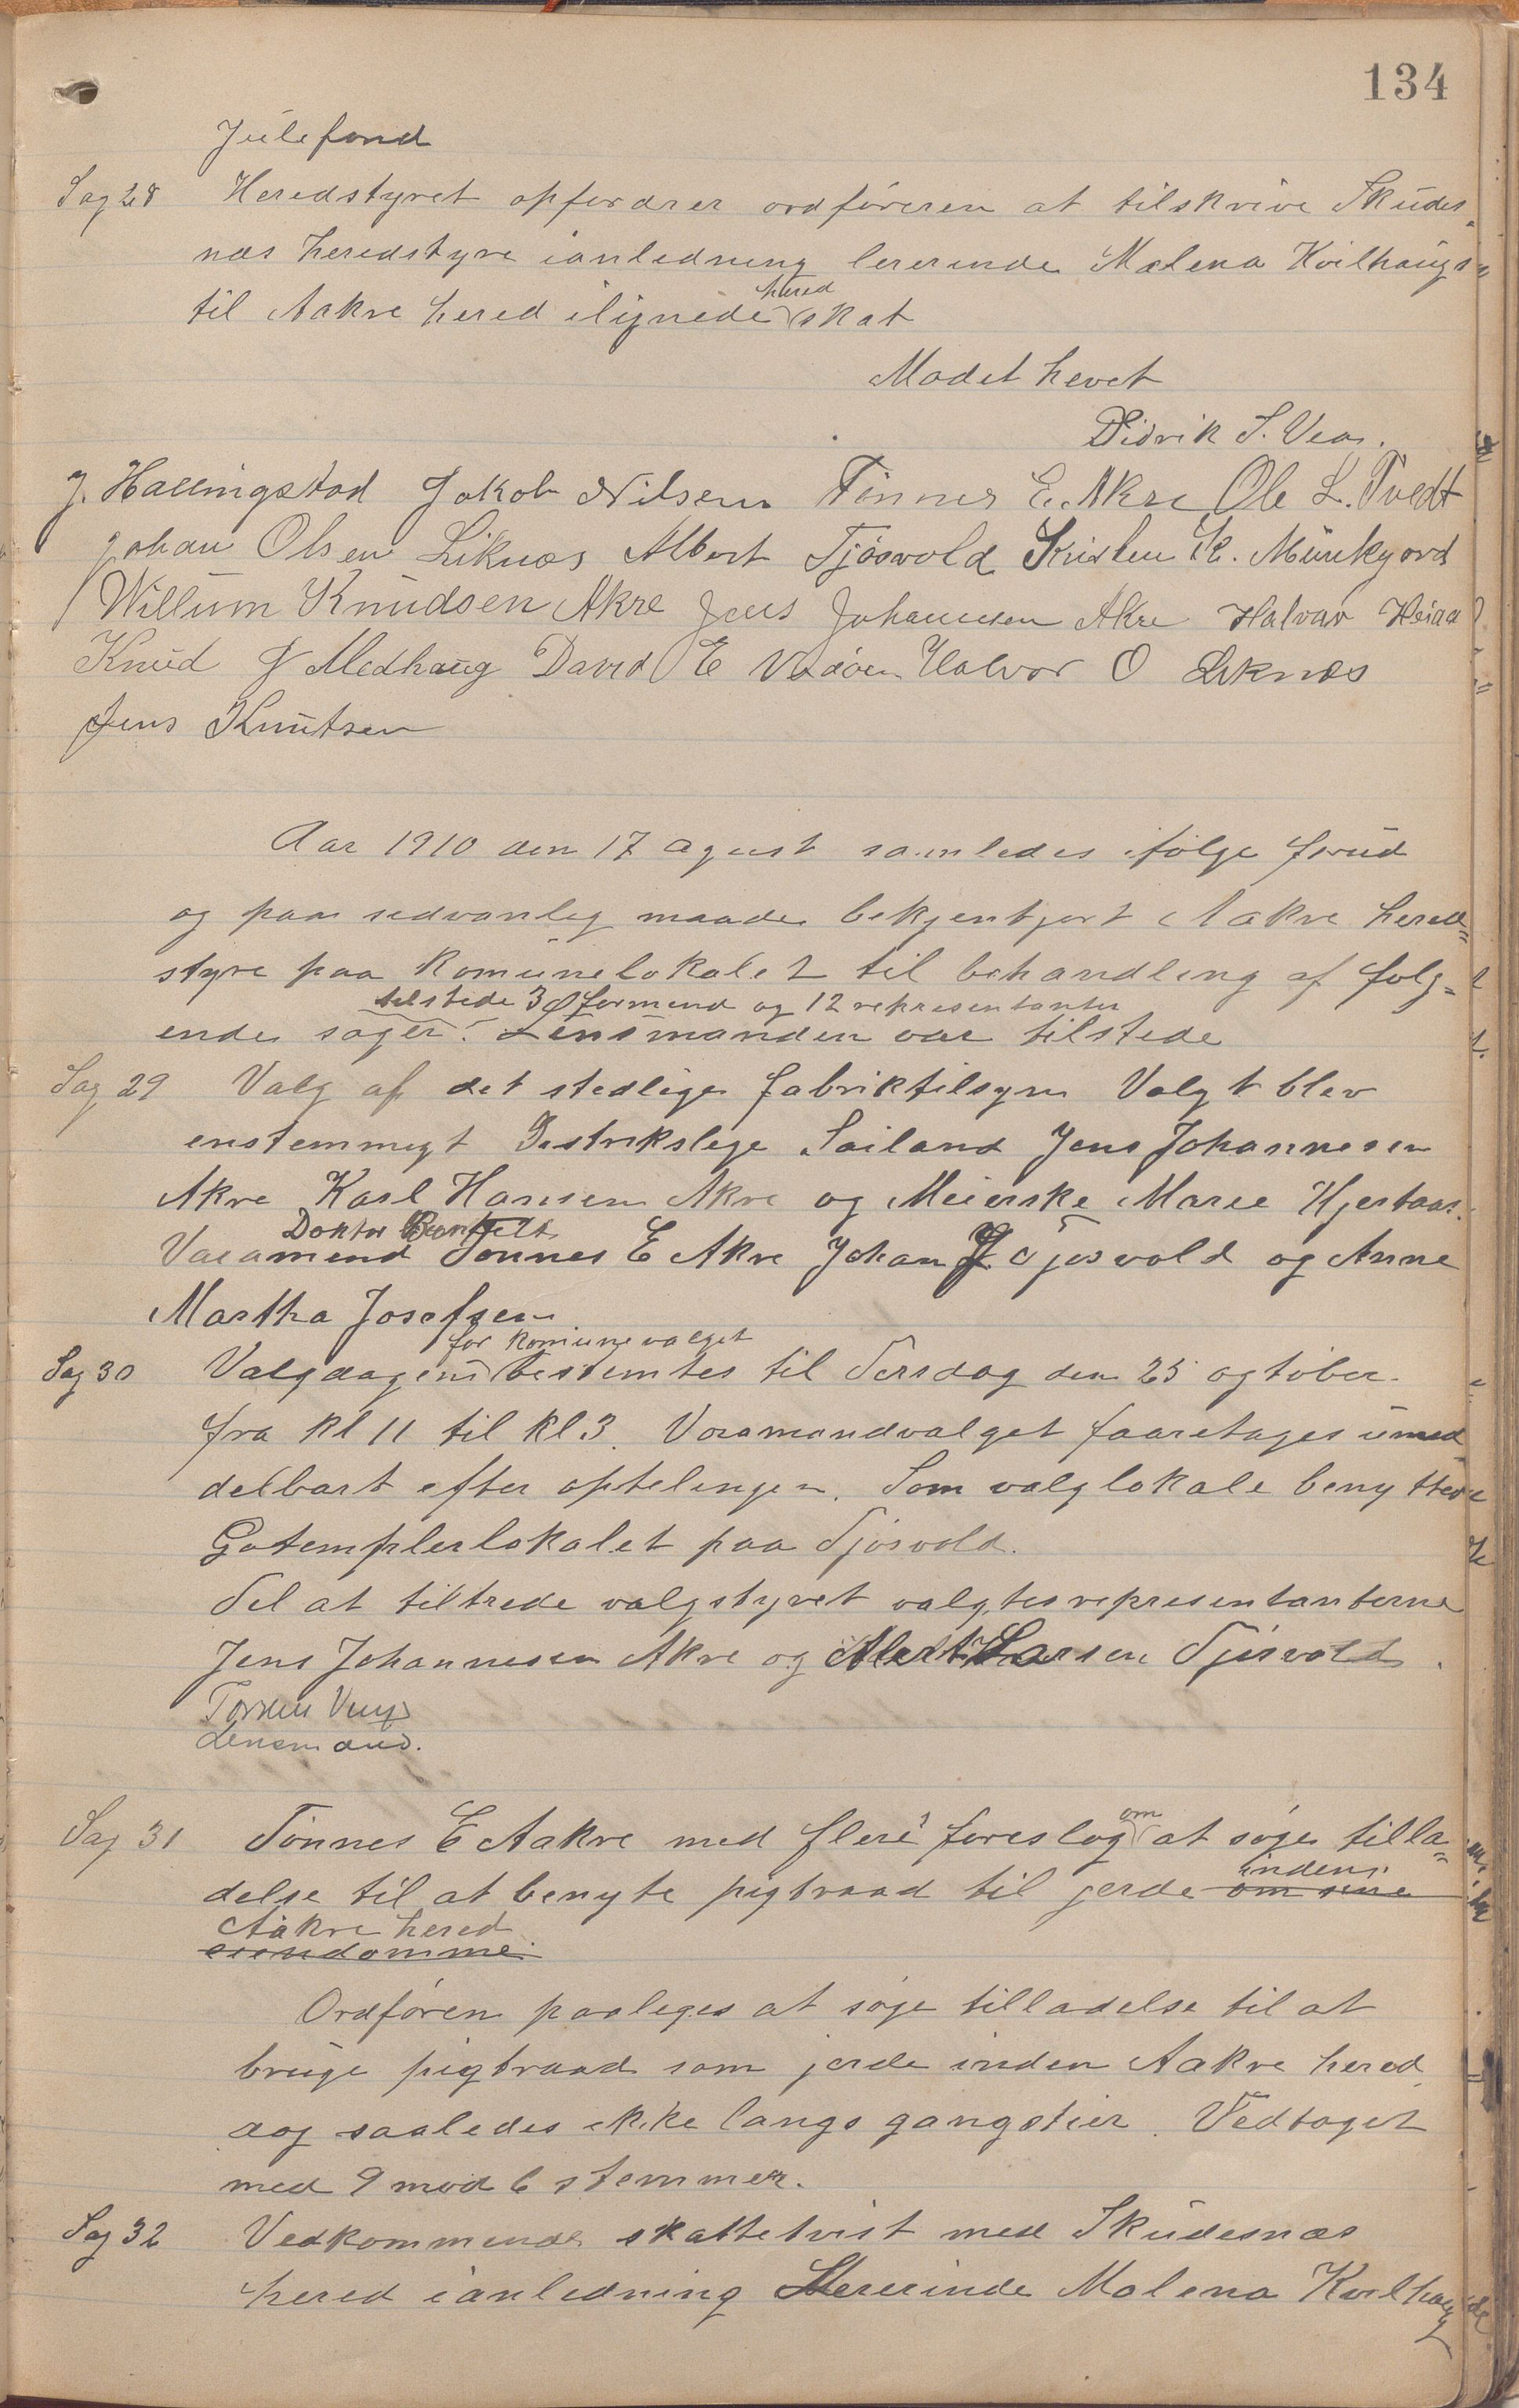 134
Julefond
Sag 28 Heredstyret opfordrer ordføreren at tilskrive Skudes-
nes heredstyre ianledning lererinde Malena Kvilhaugs
hered
til Aakre hered ilignede skat
Mødet hevet
Didrik S. Vea.
J. Hallingstad Jakob Nilsen Tønnes E. Akre Ole L. Tvedt
Johan Olsen Liknes Albert Tjøsvold Kristen K. Munkejord
Willum Knudsen Akre Jens Johannesen Akre Halvar Heiaa
Knud J Medhaug David E Vedøen Halvor O Liknes
Jens Knutsen
Aar 1910 den 17 agust samledes ifølge forud
og paa sedvanlig maade bekjentjort Aakre hered=
styre paa komunelokalet til behandling af følg-
tilstede 3 formend og 12 representanter
ende sager. Lensmanden var tilstede
Sag 29 Valg af det stedlige fabriktilsyn Valgt blev
enstemmigt Distrikslege Sailand Jens Johannesen
Akre Karl Hansen Akre og Meierske Marie Hjertaas.
Doktor
Varamend Tønnes E Akre Johan J. Tjøsvold og Anne
Martha Josefsen
for komunevalget
Sag 30 Valgdagen bestemtes til Tirsdag den 25 ogtober
fra kl 11 til kl 3. Varamandvalget faaretages umed
delbart efter optelingen. Som valglokale benyttes
Gotemplerlokalet paa Tjøsvold.
Til at tiltrede valgstyret valgtes representanterne
Jens Johannesen Akre og Albert Larsen Tjøsvold.
Torsten
Lensmand.
Sag 31 Tønnes E Aakre med flere foreslog om at søge tilla=
indeni
delse til at benyte pigtraad til jerde om sine
Aakre hered
eiendomme.
Ordføren paaleges at søge tilladelse til at
bruge pigtraad som jerde inden Aakre hered
dog saaledes ikke langs gangstier. Vedtaget
med 9 mod 6 stemmer.
Sag 32 Vedkommende skattetvist med Skudesnes
hered ianledning Lererinde Malena Kvilhaug